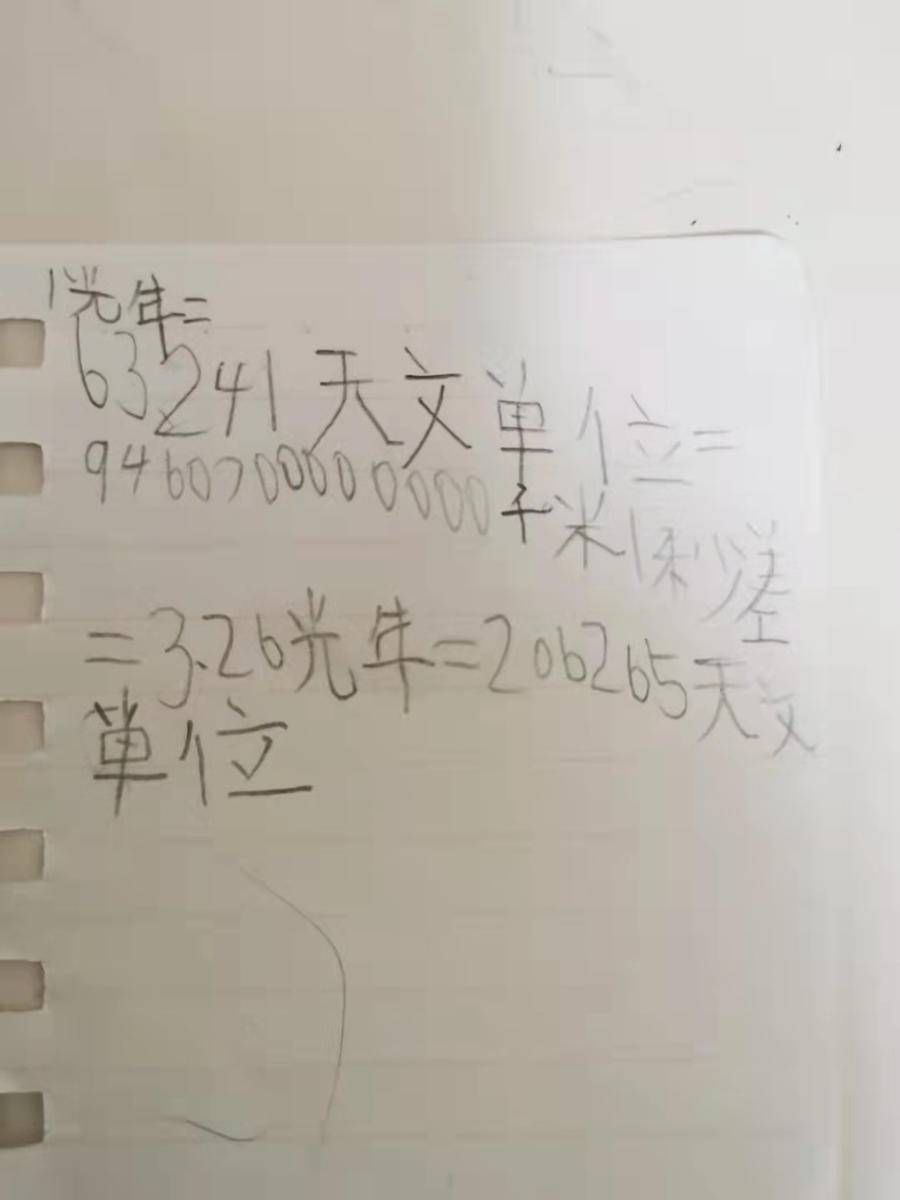 1光年=
63241天文单位=
9460700000000千米1秒差
=3.26光年=206265天文
单位